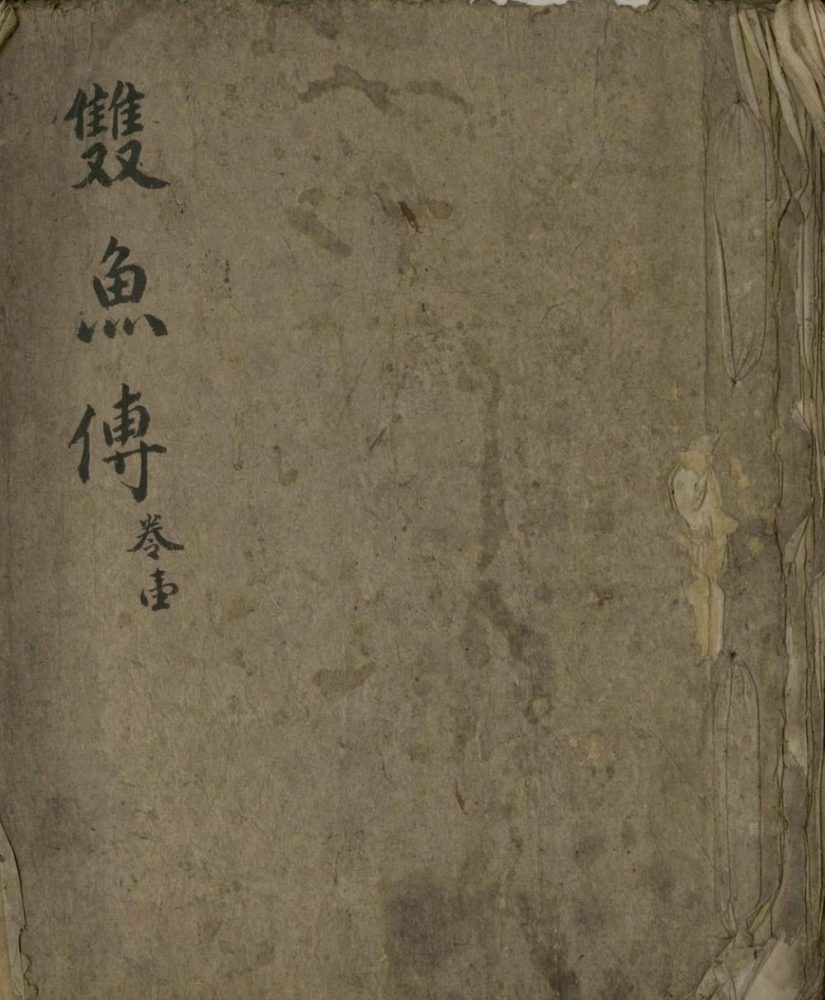 雙魚傳
卷壹